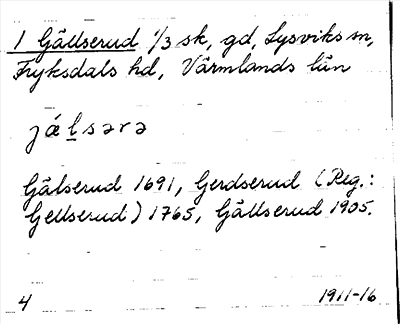 1 Gällserud 1/3 sk, gd, Lysviks sn,
Fryksdals hd, Värmlands län
jǽḷsərə
Gälserud 1691, Gerdserud (Reg.:
Gellserud) 1765, Gällserud 1905.
4 1911-16